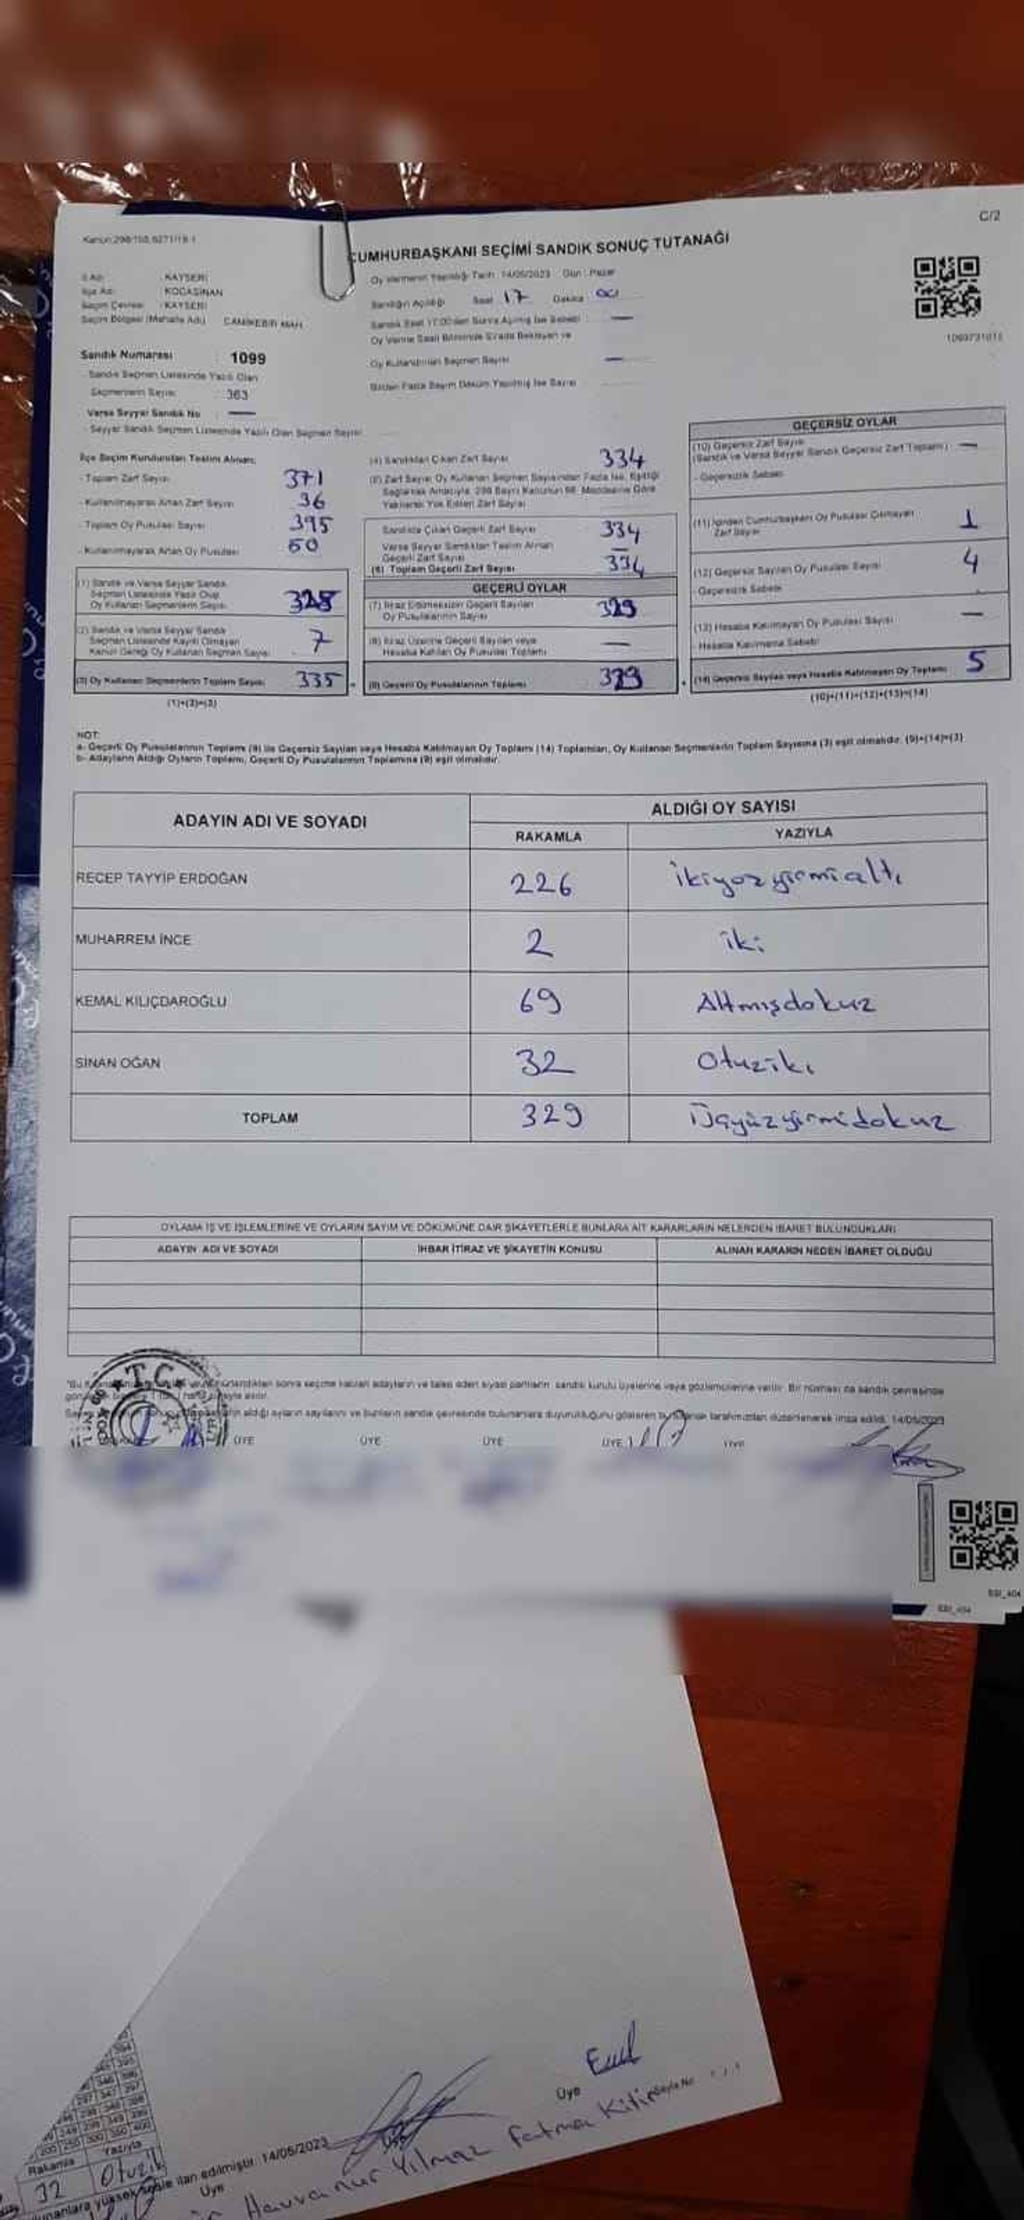 C/2
Kanun:298/105,6271/19-1
CUMHURBAŞKANI SEÇİMİ SANDIK SONUÇ TUTANAĞI
İl Adı : KAYSERİ
İlçe Adı : KOCASİNAN
Seçim Çevresi : KAYSERİ
Seçim Bölgesi (Mahalle Adı) CAMİKEBİR MAH.
Oy Vermenin Yapıldığı Tarih: 14/05/2023 Gün: Pazar
Sandığın Açıldığı Saat 17 Dakika 00
Oy Verme Saati Bitiminde Sırada Bekleyen ve
Oy Kullandırılan Seçmen Sayısı —
Birden Fazla Sayım Döküm Yapılmış İse Sayısı
Sandık Numarası : 1099
- Sandık Seçmen Listesinde Yazılı Olan
Seçmenlerin Sayısı: 363
Varsa Seyyar Sandık No —
- Seyyar Sandık Seçmen Listesinde Yazılı Olan Seçmen Sayısı:
İlçe Seçim Kurulundan Teslim Alınan;
- Toplam Zarf Sayısı 371
- Kullanılmayarak Artan Zarf Sayısı 36
- Toplam Oy Pusulası Sayısı 395
- Kullanılmayarak Artan Oy Pusulası 60
(1) Sandık ve Varsa Seyyar Sandık
Seçmen Listesinde Yazılı Olup
Oy Kullanan Seçmenlerin Sayısı 328
(2) Sandık ve Varsa Seyyar Sandık
Seçmen Listesinde Kayıtlı Olmayan
Kanun Gereği Oy Kullanan Seçmen Sayısı 7
(3) Oy Kullanan Seçmenlerin Toplam Sayısı 335
(1)+(2)=(3)
(4) Sandıktan Çıkan Zarf Sayısı 334
(5) Zarf Sayısı Oy Kullanan Seçmen Sayısından Fazla İse, Eşitliği
Sağlamak Amacıyla 298 Sayılı Kanunun 98. Maddesine Göre
Yakılarak Yok Edilen Zarf Sayısı
Sandıkta Çıkan Geçerli Zarf Sayısı 334
Varsa Seyyar Sandıktan Teslim Alınan
Geçerli Zarf Sayısı —
(6) Toplam Geçerli Zarf Sayısı 334
GEÇERLİ OYLAR
(7) İtiraz Edilmeksizin Geçerli Sayılan
Oy Pusulalarının Sayısı 329
(8) İtiraz Üzerine Geçerli Sayılan veya
Hesaba Katılan Oy Pusulası Toplamı —
(9) Geçerli Oy Pusulalarının Toplamı 329
GEÇERSİZ OYLAR
(10) Geçersiz Zarf Sayısı
(Sandık ve Varsa Seyyar Sandık Geçersiz Zarf Toplamı) —
- Geçersizlik Sebebi:
(11) İçinden Cumhurbaşkanı Oy Pusulası Çıkmayan
Zarf Sayısı 1
(12) Geçersiz Sayılan Oy Pusulası Sayısı 4
Geçersizlik Sebebi
(13) Hesaba Katılmayan Oy Pusulası Sayısı —
- Hesaba Katılmama Sebebi
(14) Geçersiz Sayılan veya Hesaba Katılmayan Oy Toplamı 5
(10)+(11)+(12)+(13)=(14)
NOT:
a- Geçerli Oy Pusulalarının Toplamı (9) ile Geçersiz Sayılan veya Hesaba Katılmayan Oy Toplamı (14) Toplamları, Oy Kullanan Seçmenlerin Toplam Sayısına (3) eşit olmalıdır. (9)+(14)=(3)
b- Adayların Aldığı Oyların Toplamı, Geçerli Oy Pusulalarının Toplamına (9) eşit olmalıdır.
ADAYIN ADI VE SOYADI
ALDIĞI OY SAYISI
RAKAMLA YAZIYLA
RECEP TAYYİP ERDOĞAN 226 ikiyozyirmialtı
MUHARREM İNCE 2 iki
KEMAL KILIÇDAROĞLU 69 Altmışdokuz
SİNAN OĞAN 32 Otuziki
TOPLAM 329 Üçyüzyirmidokuz
OYLAMA İŞ VE İŞLEMLERİNE VE OYLARIN SAYIM VE DÖKÜMÜNE DAİR ŞİKAYETLERLE BUNLARA AİT KARARLARIN NELERDEN İBARET BULUNDUKLARI
ADAYIN ADI VE SOYADI İHBAR İTİRAZ VE ŞİKAYETİN KONUSU ALINAN KARARIN NEDEN İBARET OLDUĞU
T.C.
ÜYE ÜYE ÜYE ÜYE ÜYE
Rakamla Yazıyla
32 Otuzik
ilan edilmiştir. 14/05/2023
Üye
Üye
Havvanur Yılmaz Fatma